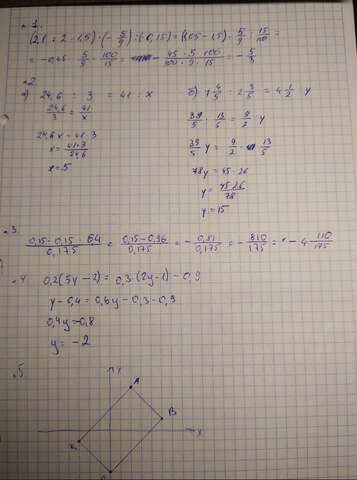 №1.
(2,1 : 2 - 1,5) · (- 5/9) : (-0,15) = (1,05 - 1,5) · 5/9 : 15/100 =
= -0,45 · 5/9 · 100/15 = - 45 · 5 · 100 / 100 · 9 · 15 = - 5/3
№2
а) 24,6 : 3 = 41 : x
24,6/3 = 41/x
24,6x = 41 · 3
x = 41·3/24,6
x = 5
б) 7 4/5 : 2 3/5 = 4 1/2 : y
39/5 : 13/5 = 9/2 : y
39/5 y = 9/2 · 13/5
78y = 45 · 26
y = 45·26/78
y = 15
№3.
0,15 - 0,15 · 6,4 / 0,175 = 0,15 - 0,96 / 0,175 = - 0,81/0,175 = - 810/175 = - 4 110/175
№4 0,2(5y - 2) = 0,3(2y - 1) - 0,9
y - 0,4 = 0,6y - 0,3 - 0,9
0,4y = -0,8
y = -2
№5
y
A
B
x
K
C